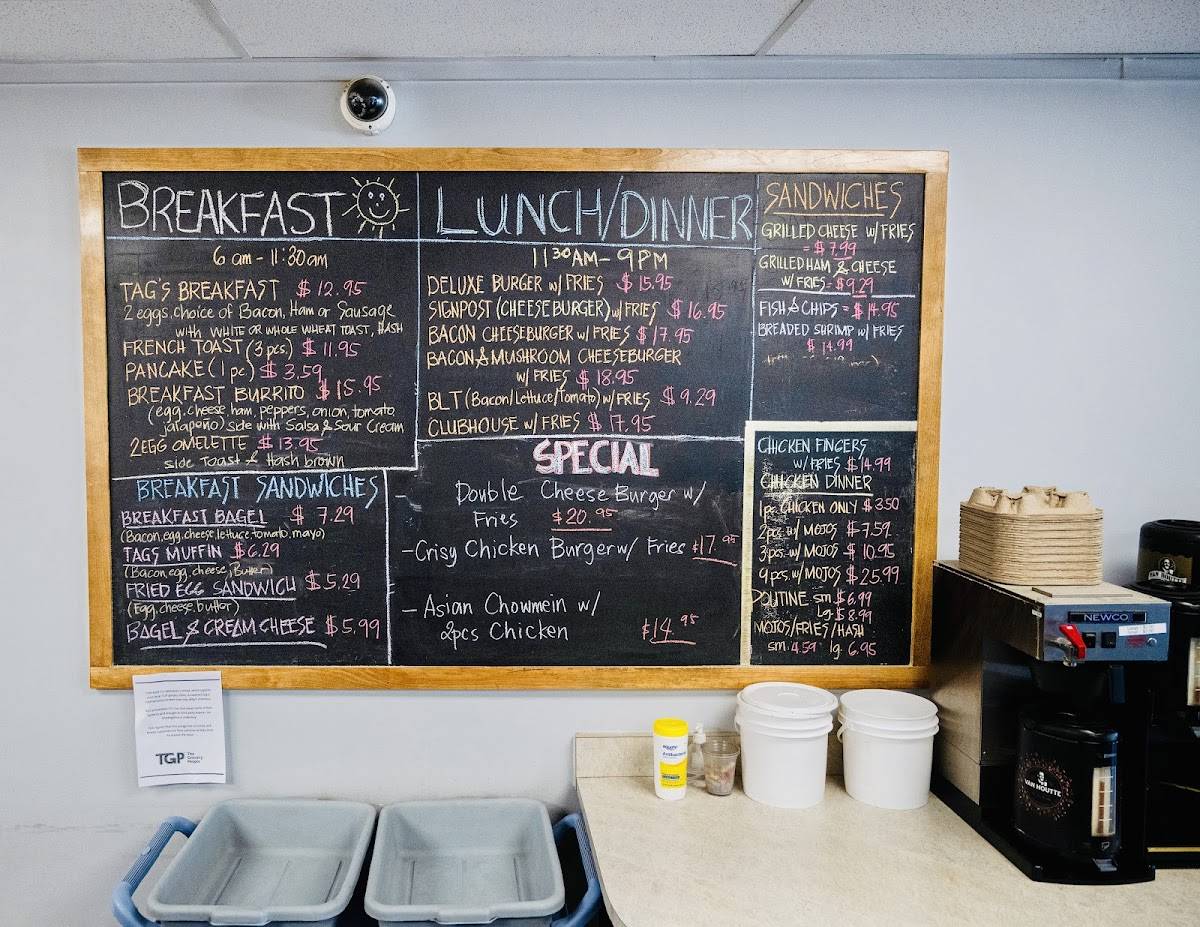 BREAKFAST
6 am - 11:30am
TAG'S BREAKFAST $12.95
2 eggs, choice of Bacon, Ham or Sausage
with WHITE OR WHOLE WHEAT TOAST, HASH
FRENCH TOAST (3 pcs.) $11.95
PANCAKE (1 pc.) $3.59
BREAKFAST BURRITO $15.95
(egg, cheese, ham, peppers, onion, tomato
jalapeño) side with Salsa & Sour Cream
2EGG OMELETTE $13.95
side Toast & Hash brown
BREAKFAST SANDWICHES
BREAKFAST BAGEL $7.29
(Bacon, egg, cheese, lettuce, tomato, mayo)
TAGS MUFFIN $6.29
(Bacon, egg, cheese, Butter)
FRIED EGG SANDWICH $5.29
(Egg, cheese, butter)
BAGEL & CREAM CHEESE $5.99
LUNCH/DINNER
11 30 AM - 9 PM
DELUXE BURGER w/ FRIES $15.95
SIGNPOST (CHEESE BURGER) w/ FRIES $16.95
BACON CHEESEBURGER w/ FRIES $17.95
BACON & MUSHROOM CHEESEBURGER
w/ FRIES $18.95
BLT (Bacon/Lettuce/Tomato) w/ FRIES $9.29
CLUBHOUSE w/ FRIES $17.95
SPECIAL
- Double Cheese Burger w/
Fries $20.95
- Crisy Chicken Burger w/ Fries $17.95
- Asian Chowmein w/
2pcs Chicken $14.95
SANDWICHES
GRILLED CHEESE w/ FRIES
= $7.99
GRILLED HAM & CHEESE
w/ FRIES = $9.29
FISH & CHIPS = $14.95
BREADED SHRIMP w/ FRIES
$14.99
CHICKEN FINGERS
w/ FRIES $14.99
CHICKEN DINNER
1pc. CHICKEN ONLY $3.50
2pcs. w/ MOJOS $7.59
3pcs. w/ MOJOS $10.95
9pcs. w/ MOJOS $25.99
POUTINE sm. $6.99
Lg. $8.99
MOJOS/FRIES/HASH
sm. 4.59 lg. 6.95
TGP The Grocery People
NEWCO
VAN HOUTTE
VAN HOUTTE